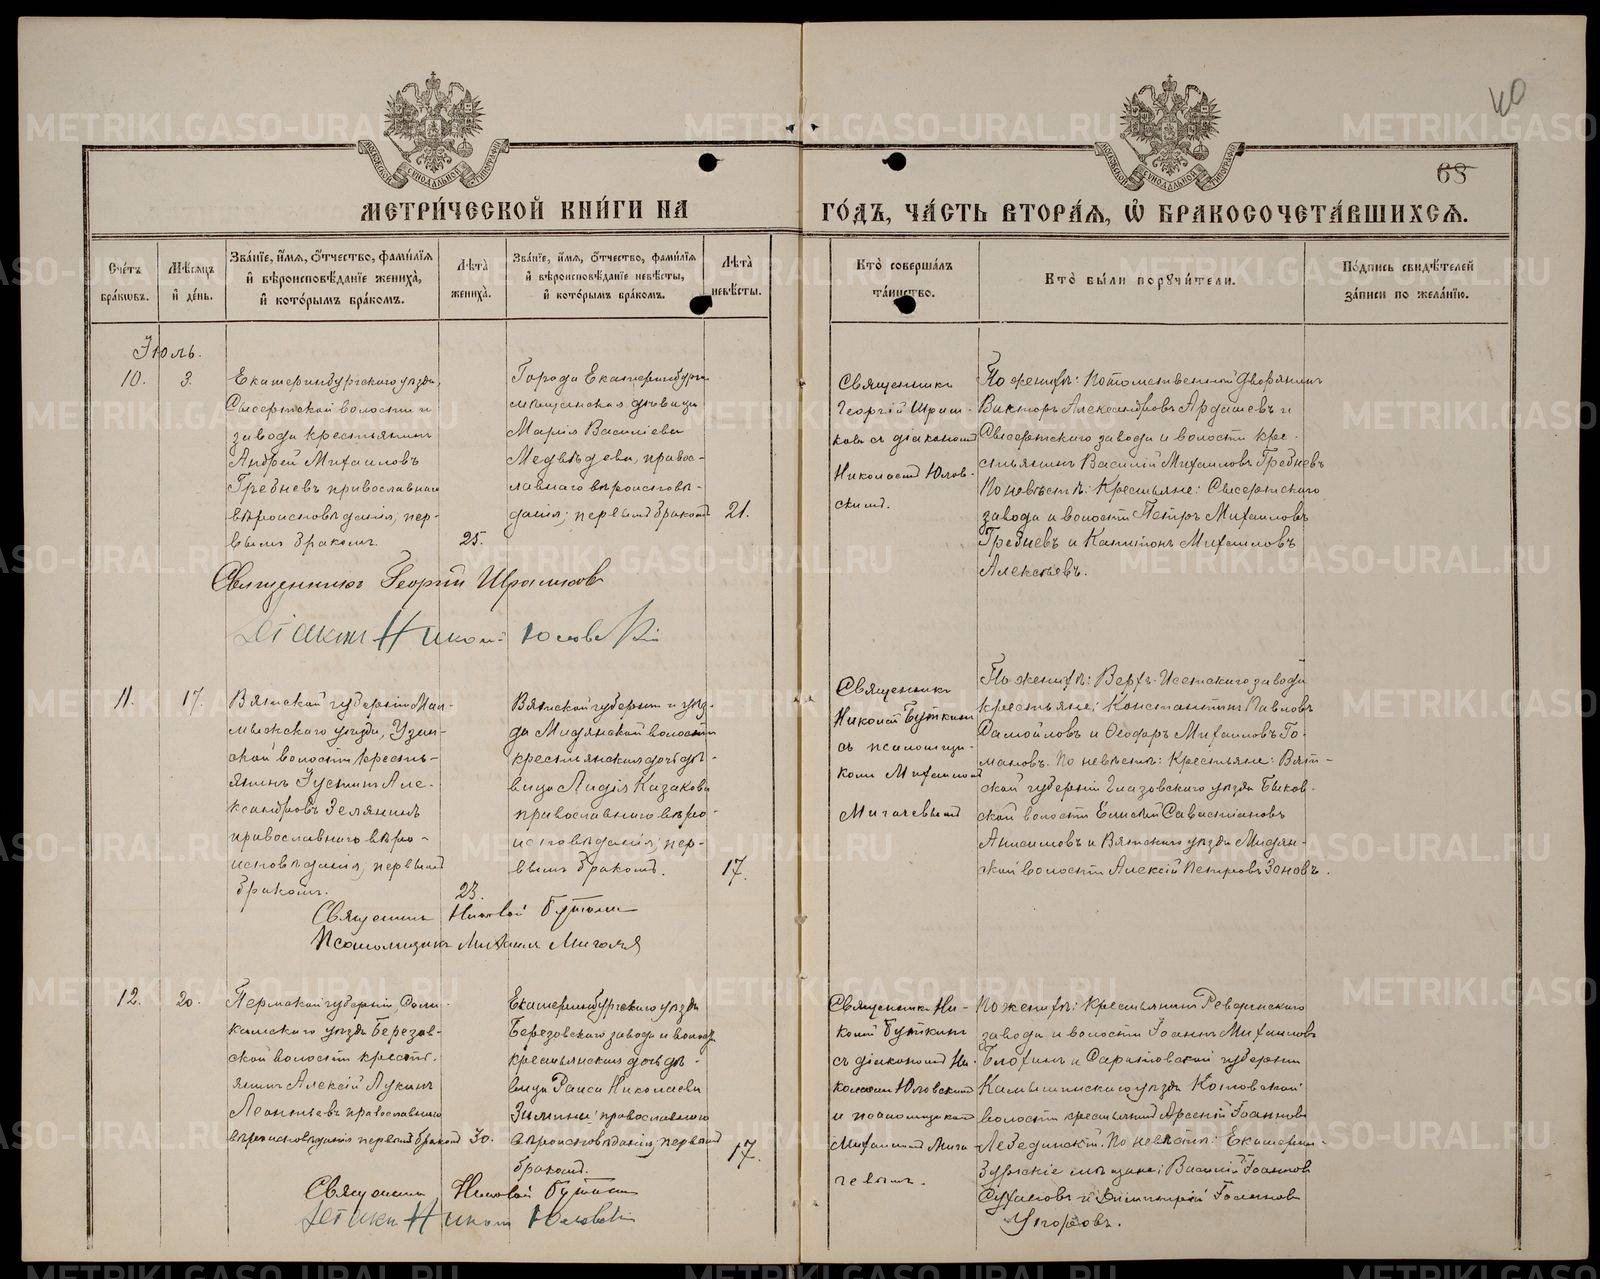 40
68
МОСКОВСКОЙ СѴНОДАЛЬНОЙ ТИПОГРАФІИ
МОСКОВСКОЙ СѴНОДАЛЬНОЙ ТИПОГРАФІИ
МЕТРИ́ЧЕСКОЙ КНИ́ГИ НА
ГО́ДЪ, ЧА́СТЬ ВТОРА́Я, Ѽ БРАКОСОЧЕТА́ВШИХСЯ.
Сче́тъ
бра́кѡвъ.
Мѣ́сяцъ
и҆ де́нь.
Зва́нїе, и҆́мя, ѻ҆́тчество, фами́лїя
и҆ вѣроисповѣ́данїе жениха̀,
и҆ кото́рымъ бра́комъ.
Лѣта̀
жениха̀.
Зва́нїе, и҆́мя, ѻ҆́тчество, фами́лїя
и҆ вѣроисповѣ́данїе невѣ́сты,
и҆ кото́рымъ бра́комъ.
Лѣта̀
невѣ́сты.
Кто̀ соверша́лъ
та́инство.
Кто̀ бы́ли порꙋчи́тели.
По́дпись свидѣ́телей
за́писи по жела́нїю.
Іюль.
10.
3.
Екатеринбургскаго уѣзда,
Сысертской волости и
завода крестьянинъ
Андрей Михаиловъ
Гребневъ православнаго
вѣроисповѣданія, пер-
вымъ бракомъ.
25.
Города Екатеринбурга
мѣщанская дѣвица
Марія Василіева
Медвѣдева, правос-
лавнаго вѣроисповѣ-
данія; первымъ бракомъ
21.
Священникъ
Георгій
ковъ съ діакономъ
Николаемъ Юлов-
скимъ.
По женихѣ: потомственный дворянинъ
Викторъ Александровъ Ардашевъ и
Сысертскаго завода и волости кре-
стьянинъ Василій Михаиловъ Гребневъ
По невѣстѣ: крестьяне: Сысертскаго
завода и волости Петръ Михаиловъ
Гребневъ и Капитонъ Михаиловъ
Алексѣевъ.
Священникъ Георгій
Діаконъ Николай Юловскій
11.
17.
Вятской губерніи Мал-
мыжскаго уѣзда, Узин-
ской волости кресть-
янинъ Іустинъ Але-
ксандровъ Зелянинъ
православнаго вѣро-
исповѣданія, первымъ
бракомъ.
23.
Вятской губерніи и уѣз-
да Мидянской волости
крестьянская дочь дѣ-
вица Лидія Казакова
православнаго вѣро-
исповѣданія; пер-
вымъ бракомъ.
17.
Священникъ
Николай Буткинъ
съ псаломщи-
комъ Михаиломъ
Мигачевымъ
По женихѣ: Верх-Исетскаго завода
крестьяне: Константинъ Павловъ
Самойловъ и Ѳеодоръ Михаиловъ Го-
мановъ. По невѣстѣ: Крестьяне: Вят-
ской губерніи Глазовскаго уѣзда Быков-
ской волости Елисей Савастіановъ
Анисимовъ и Вятскаго уѣзда Мидян-
ской волости Алексій Петровъ Зоновъ.
Священникъ Николай Буткинъ
Псаломщикъ Михаилъ Мигачев
12.
20.
Пермской губерніи, Соли-
камскаго уѣзда Березов-
ской волости кресть-
янинъ Алексій Лукинъ
Леонтьевъ православнаго
вѣроисповѣданія первымъ бракомъ
30.
Екатеринбургскаго уѣзда
Березовскаго завода и волости
крестьянская дочь дѣ-
вица Раиса Николаева
Зимина православнаго
вѣроисповѣданія; первымъ
бракомъ.
17.
Священникъ Ни-
колай Буткинъ
съ діакономъ Ни-
колаемъ Юловскимъ
и псаломщикомъ
Михаиломъ Мига-
чевымъ.
По женихѣ: крестьянинъ Ревдинскаго
завода и волости Іоаннъ Михаиловъ
Блохинъ и Саратовской губерніи
Камышинскаго уѣзда Котовской
волости крестьянинъ Арсеній Іоанновъ
Лебединскій. По невѣстѣ: Екатерин-
бургскіе мѣщане: Василій Іоанновъ
Сухановъ и Димитрій
Священникъ Николай Буткинъ
Діаконъ Николай Юловскій
METRIKI.GASO-URAL.RU